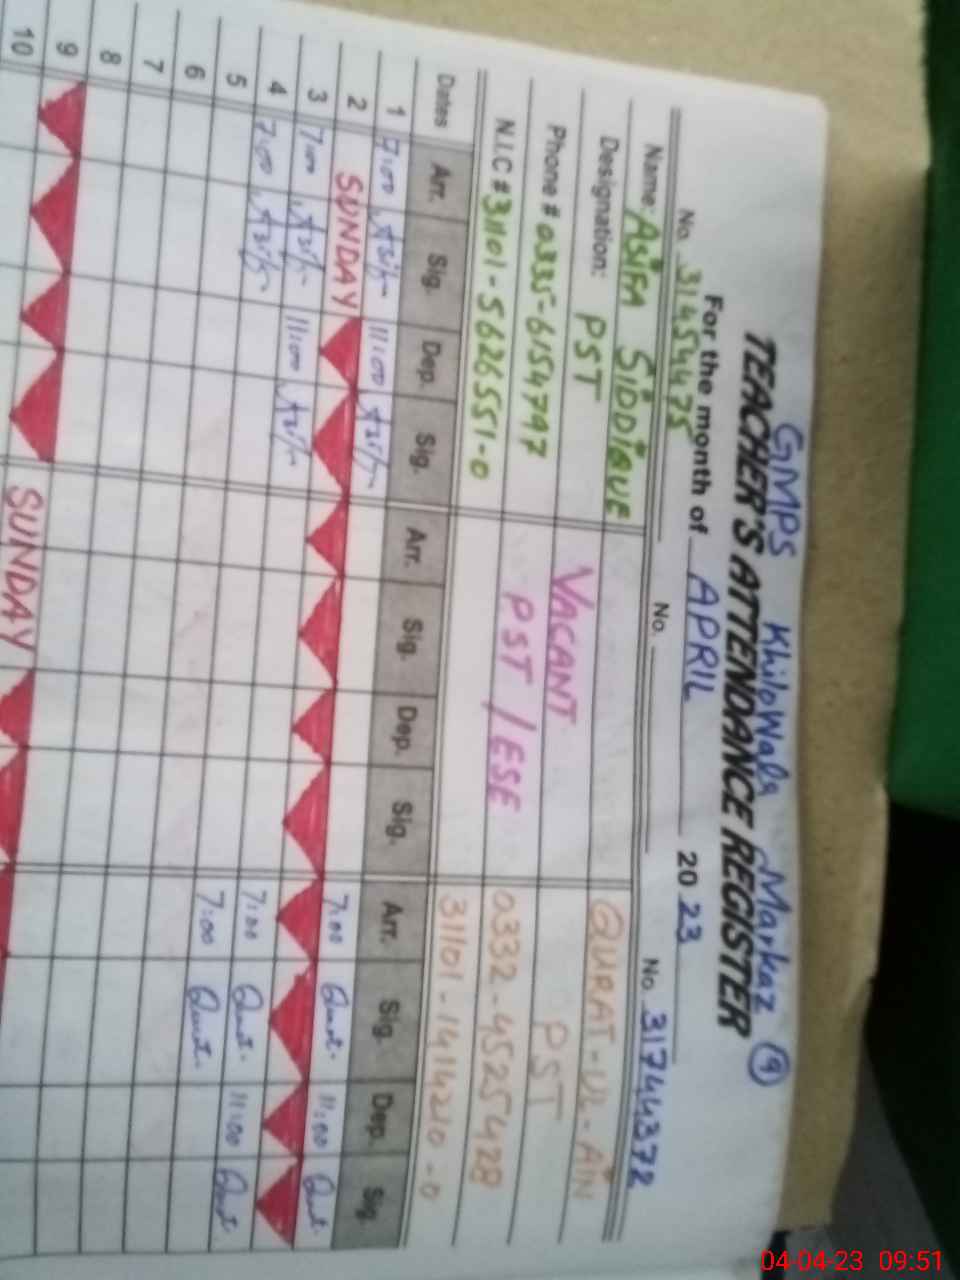 GMPS KhiloWala Markaz (9)
TEACHER'S ATTENDANCE REGISTER
For the month of APRIL 2023
No. 31454475 No. No. 31744372
Name: ASIFA SIDDIQUE QURAT-UL-AIN
Designation: PST VACANT PST
Phone # 0335-6154797 PST / ESE 0332-4525428
N.I.C # 31101-5626551-0 31101-1414210-0
Dates Arr. Sig. Dep. Sig. Arr. Sig. Dep. Sig. Arr. Sig. Dep. Sig.
1 7:00 Asifa 11:00 Asifa 7:00 Qurat. 11:00 Qurat.
2 SUNDAY
3 7:00 Asifa 11:00 Asifa 7:00 Qurat. 11:00 Qurat.
4 7:00 Asifa 7:00 Qurat.
5
6
7
8
9 SUNDAY
10
04-04-23 09:51